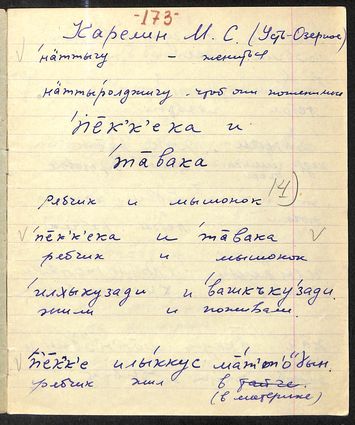 -173-
Карелин М. С. (Усть-Озерное)
нӓттыгу – жениться
нӓттыро̄лджигу - чтоб они поженились
'пе̄к'к'ека и
'та̄вака
рябчик и мышонок 14).
'пе̄к'к'ека и 'та̄вака
ребчик и мышонок
'илхыкузади и 'вашкъку'зади.
жили и поживали.
'пе̄к'к'е илы́ккус ма̄т'то̄'ӧӷын.
рябчик жил в тайге.
(в материке)